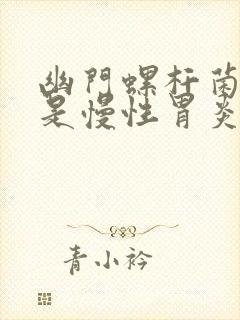 幽門螺杆菌
是慢性胃炎
青小衿